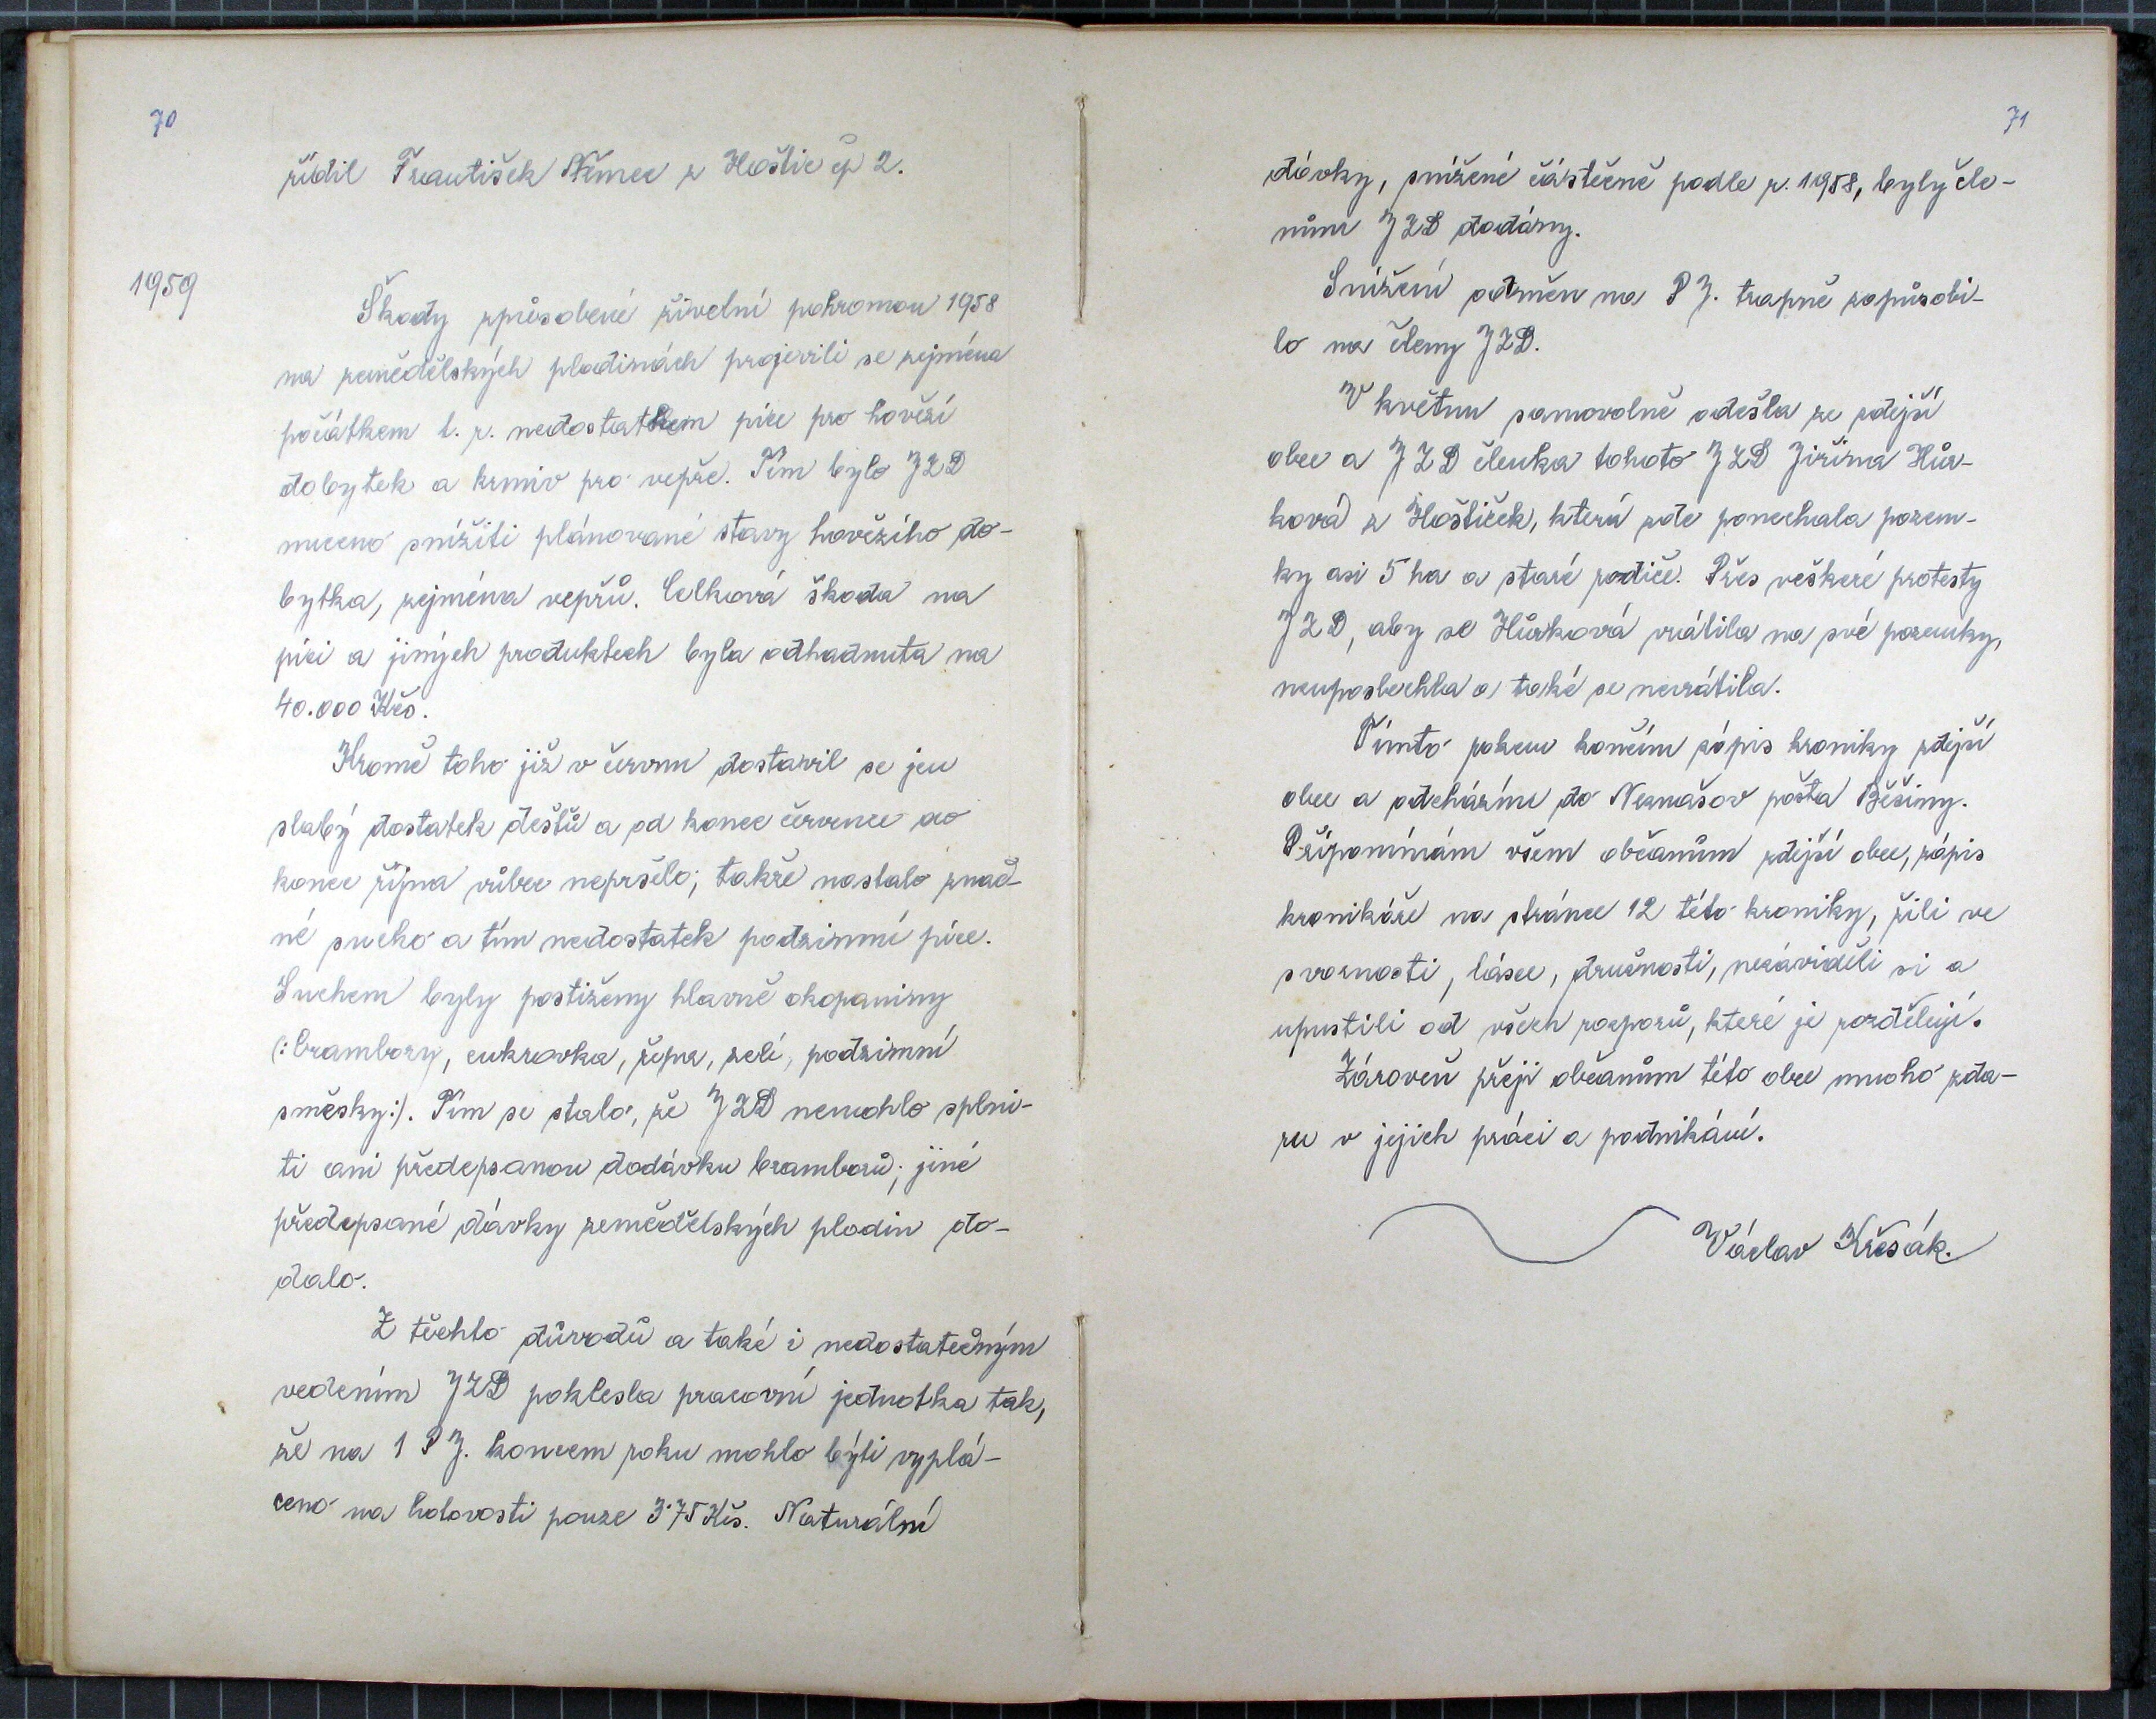 70
řídil František Němec z Hoštic čp 2.
1959
Škody způsobené živelní pohromou 1958
na zemědělských plodinách projevili se zejména
počátkem t. r. nedostatkem píce pro hovězí
dobytek a krmiv pro vepře. Tím bylo JZD
nuceno snížiti plánované stavy hovězího do-
bytka, zejména vepřů. Celková škoda na
píci a jiných produktech byla odhadnuta na
40.000 Kčs.
Kromě toho již v červnu dostavil se jen
slabý dostatek dešťů a od konce července do
konce října vůbec nepršelo; takže nastalo znač-
né sucho a tím nedostatek podzimní píce.
Suchem byly postiženy hlavně okopaniny
(:brambory, cukrovka, řepa, zelí, podzimní
směsky:). Tím se stalo, že JZD nemohlo splni-
ti ani předepsanou dodávku bramborů; jiné
předepsané dávky zemědělských plodin do-
dalo.
Z těchto důvodů a také i nedostatečným
vedením JZD poklesla pracovní jednotka tak,
že na 1 PJ. koncem roku mohlo býti vyplá-
ceno na hotovosti pouze 3·75 Kčs. Naturální
71
dávky, snížené částečně podle r. 1958, byly čle-
nům JZD dodány.
Snížení odměn na PJ. trapně zapůsobi-
lo na členy JZD.
V květnu samovolně odešla ze zdejší
obce a JZD členka tohoto JZD Jiřina Hůr-
ková z Hoštiček, která zde ponechala pozem-
ky asi 5 ha a staré rodiče. Přes veškeré protesty
JZD, aby se Hůrková vrátila na své pozemky,
neuposlechla a také se nevrátila.
Tímto rokem končím zápis kroniky zdejší
obce a odcházím do Neznašov pošta Běšiny.
Připomínám všem občanům zdejší obce, zápis
kronikáře na stránce 12 této kroniky, žili ve
svornosti, lásce, družnosti, nezáviděli si a
upustili od všech rozporů, které je rozdělují.
Zároveň přeji občanům této obce mnoho zda-
ru v jejich práci a podnikání.
Václav Křesák.